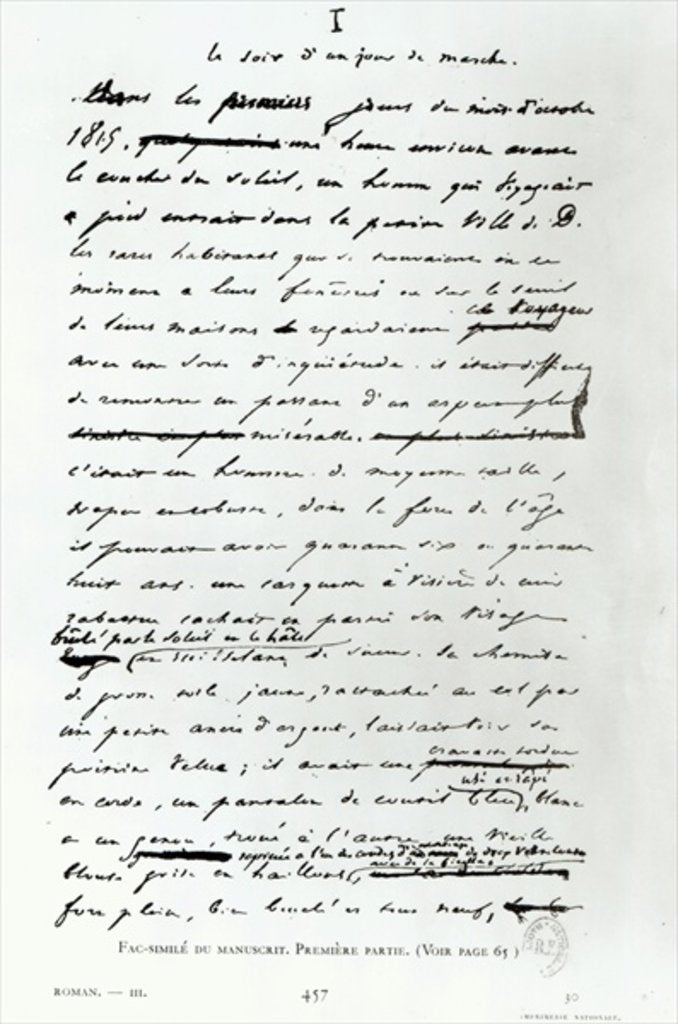 I
le soir d'un jour de marche.
Dans les premiers jours du mois d'octobre
1815, une heure environ avant
le coucher du soleil, un homme qui voyageait
à pied entrait dans la petite ville de D.
les rares habitants qui se trouvaient en ce
moment à leurs fenêtres ou sur le seuil
de leurs maisons regardaient ce voyageur
avec une sorte d'inquiétude. il était difficile
de rencontrer un passant d'un aspect plus
misérable.
c'était un homme de moyenne taille,
trapu et robuste, dans la force de l'âge
il pouvait avoir quarante six ou quarante
huit ans. une casquette à visière de cuir
rabattue cachait en partie son visage
brûlé par le soleil et le hâle
et ruisselant de sueur. Sa chemise
de grosse toile jaune, rattachée au col par
une petite ancre d'argent, laissait voir sa
poitrine velue ; il avait une cravate tordue
en corde, un pantalon de coutil bleu, usé et râpé, blanc
à un genou, troué à l'autre, une vieille
blouse grise en haillons, rapiécée à l'un des coudes d'un morceau de drap vert cousu
avec de la ficelle
fort plein, bien bouclé et tout neuf,
FAC-SIMILÉ DU MANUSCRIT. PREMIÈRE PARTIE. (VOIR PAGE 65)
ROMAN. — III. 457 30
IMPRIMERIE NATIONALE.